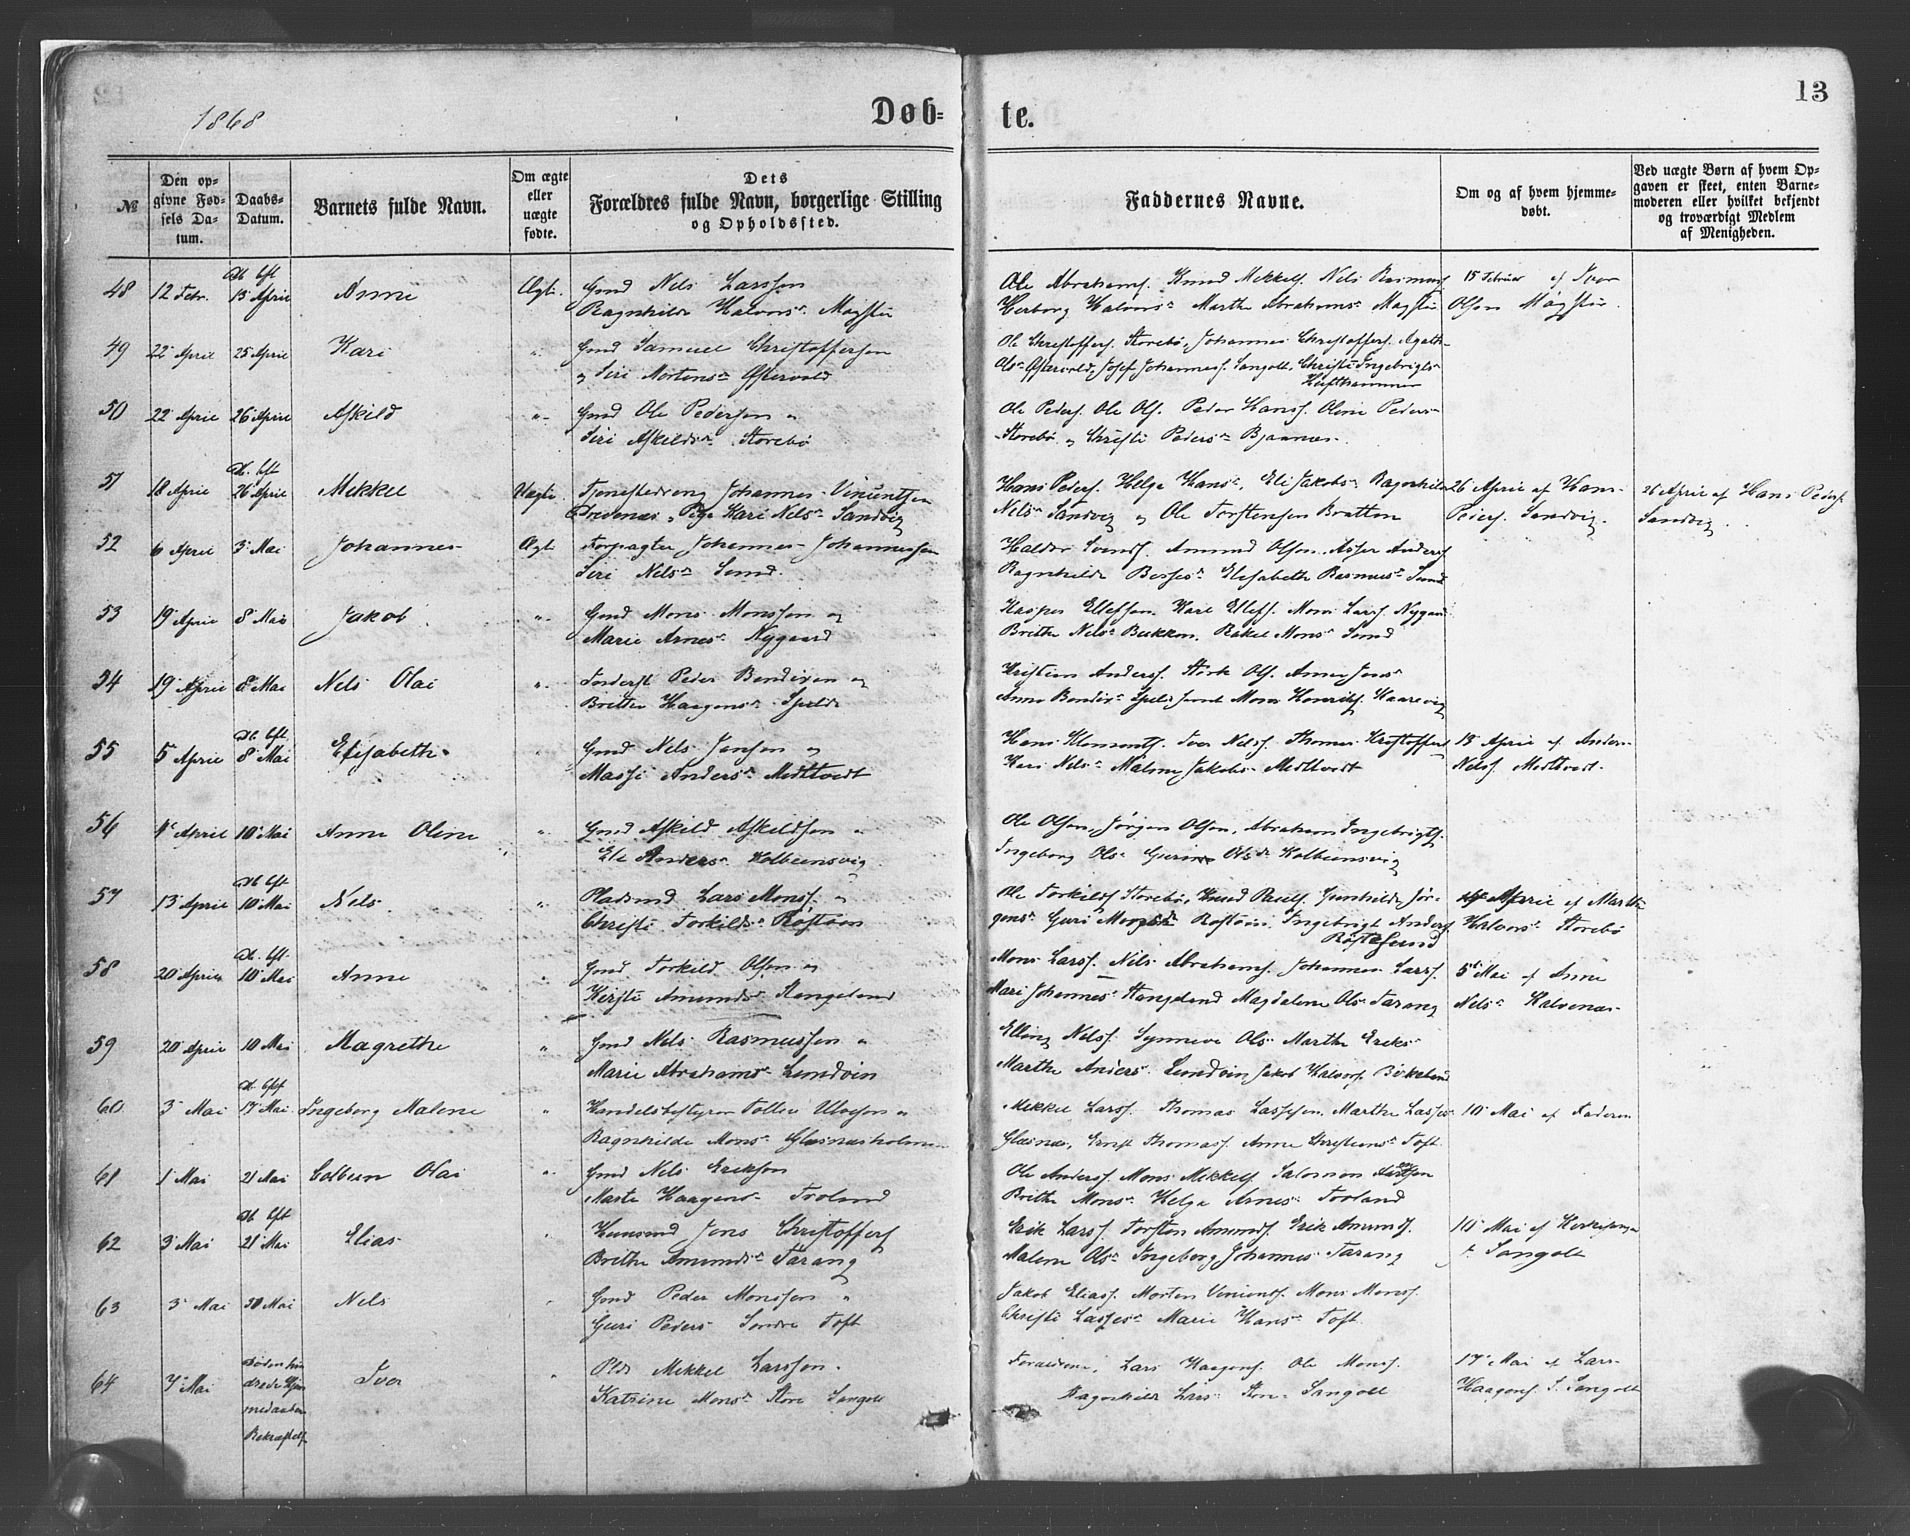 1868
Døb-
te.
13
№
Den opgivne Fødsels Datum.
Daabs-Datum.
Barnets fulde Navn.
Om ægte eller uægte fødte.
Dets Forældres fulde Navn, borgerlige Stilling og Opholdssted.
Faddernes Navne.
Om og af hvem hjemmedøbt.
Ved uægte Børn af hvem Opgaven er skeet, enten Barnemoderen eller hvilket bekjendt og troværdigt Medlem af Menigheden.
48 12 Febr. 13 April Anne Ægte. Gmd Nels Larssen
Ragnhilde Halvorsr Møgster
Ole Abrahamss. Knud Mekkels. Nels Rasmuss.
Herborg Halvorsr Marthe Abrahamsr Møgster
15 Februar af Ivar
Olsen Møgster.
49 22 April 25 April Kari " Gmd Samuel Christoffersen
og Siri Mortensr Østervold
Ole Christoffers. Storebø, Johannes Christoffers. Agathe
Olsr Østervold, Josef Johanness. Sangolt, Christi Ingebrigtsr
Hufthammer
50 22 April 26 April Askild " Gmd Ole Pedersen "
Siri Askildsr Storebø
Ole Peders. Ole Ols. Peder Hanss. Oline Pedersr
Storebø og Christi Pedersr Bjaanæs.
51 18 April 26 April Mekkel Uægte. Tjenestedreng Johannes Vincentsen
Pige Kari Nelsr Sandvig
Hans Peders. Helga Hansr, Eli Jakobsr Ragnhilde
Nelsr Sandvig og Ole Torstensen Bratten
26 April af Hans
Peders. Sandvig.
26 April af Hans Peders.
Sandvig.
52 6 April 3 Mai Johannes Ægte Forpagter Johannes Johannessen
Siri Nelsr Sund.
Haldor Svends. Amund Olsen. Asser Anders.
Ragnhilde Børgesr Elisabeth Rasmusr Sund
53 19 April 8 Mai Jakob " Gmd Mons Monssen og
Marie Arnesr Nygaard
Kasper Ellefsen Karl Ellefs. Mons Larss. Nygaard
Brithe Nelsr Bukken. Rakel Monsr Sund
54 19 April 8 Mai Nels Olai " Peder Bendixen og
Brithe Haagensr Speld
Kristian Anderss. Størk Ols. Anne Jonsr
Anne Bendixr Speld samt Mons Henriks. Kaarevig
55 5 April 8 Mai Elisabethe " Gmd Nels Jansen og
Massi Andersr Medtvedt
Hans Klements. Iver Nelss. Thomas Kristoffers.
Kari Nelsr Malene Jakobsr Medtvedt
13 April af Anders
Nelss. Medtvedt.
56 4 April 10 Mai Anne Oline " Gmd Askild Askildsen "
Eli Andersr Kolbeensvig
Ole Olsen, Jørgen Olsen, Abraham Ingebrigts.
Ingeborg Olsr Guri Olsdr Kolbeensvig
57 13 April 10 Mai Nels " Pladsmd Lars Monss. og
Christi Torkildsr Røstøen
Ole Torkilds. Storebø, Knud Pauls. Gunhilde Jør-
gensr Guri Monsdr Røstøen. Ingebrigt Anderss.
Røstesund
April af Marthe
Halvorsr Storebø
58 20 April 10 Mai Anne " Gmd Torkild Olsen og
Kirsti Amundsr Stangeland
Mons Larss. Nils Abrahams. Johannes Larss.
Mari Johannesr Stangeland Magdalene Olsr Tarang
5 Mai af Anne
Nelsr Kalvenæs
59 20 April 10 Mai Magrethe " Gmd Nels Rasmussen "
Marie Abrahamsr Lundøen
Elling Nelss. Synneve Olsr Marthe Eriksr
Marthe Andersr Lundøen Jakob Halvors. Birkeland
60 3 Mai 17 Mai Ingeborg Malene " Handelsbestyrer Tollev "
Ragnhilde Monsr Glæsnæsholmen
Mekkel Larss. Thomas Lassesen. Marthe Lassesr
Glæsnæs, Ernst Thomass. Anne Christensr Toft
10 Mai af Faderen
61 1 Mai 21 Mai Colbeen Olai " Gmd Nels Eriksen
Marte Haagensr Troland
Ole Anderss. Mons Mekkels. Salomon
Brithe Monsr Helga Arnesr Troland
62 3 Mai 21 Mai Elias " Huusmd Jens Christoffers.
Brithe Amundsr Tarang
Erik Larss. Torsten Amunds. Erik Amunds.
Malene Olsr Ingeborg Johannesr Tarang
10 Mai af Kirkesanger
Sangolt
63 3 Mai 30 Mai Nels " Gmd Peder Monssen "
Guri Pedersr Søndre Toft
Jakob Eliass. Morten Vincents. Mons Monss.
Christi Lassesr Marie Hansr Toft
64 7 Mai Iver " Plds Mekkel Larssen.
Katrine Monsr Store Sangolt
Forældrene, Lars Haagens. Ole Monss.
Ragnhilde Larsr Store Sangolt
17 Mai af Lars
Haagens. S. Sangolt